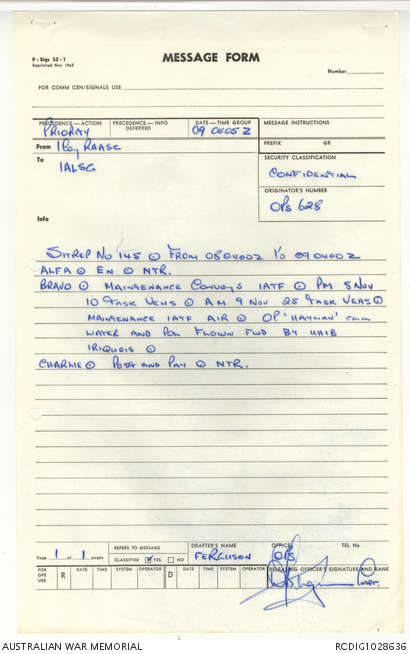 F-Sigs 52-1
Reprinted Nov 1965
MESSAGE FORM
Number
FOR COMM CEN/SIGNALS USE
PRECEDENCE—ACTION
PRIORITY
PRECEDENCE—INFO
DEFERRED
DATE—TIME GROUP
090405Z
MESSAGE INSTRUCTIONS
From 1 Coy RAASC
PREFIX GR
To 1ALSG
SECURITY CLASSIFICATION
CONFIDENTIAL
ORIGINATOR'S NUMBER
OPS 628
Info
SITREP No 145 ⊙ FROM 080400Z TO 090400Z
ALFA ⊙ EN ⊙ NTR.
BRAVO ⊙ MAINTENANCE CONVOYS 1ATF ⊙ PM 8 NOV
10 TASK VEHS ⊙ AM 9 NOV 25 TASK VEHS ⊙
MAINTENANCE 1ATF AIR ⊙ OP 'HAYMAN' CMM
WATER AND POL FLOWN FWD BY UH1B
IRIQUOIS ⊙
CHARLIE ⊙ POST AND PAY ⊙ NTR.
Page 1 of 1 pages
REFERS TO MESSAGE
CLASSIFIED YES NO
DRAFTER'S NAME
FERGUSON
OFFICE
OPS
TEL No
FOR OPS USE
R DATE TIME SYSTEM OPERATOR D DATE TIME SYSTEM OPERATOR
RELEASING OFFICER'S SIGNATURE AND RANK
Capt
AUSTRALIAN WAR MEMORIAL
RCDIG1028636